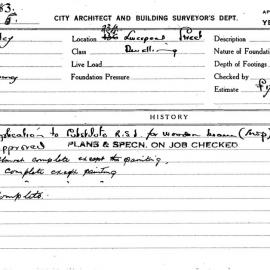 83.
CITY ARCHITECT AND BUILDING SURVEYOR'S DEPT.
6.
Location Liverpool Street
Nature of Foundation
Class Dwelling
Depth of Footings
Live Load
Checked by
Foundation Pressure
Estimate
HISTORY
Application to Substitute R.S.J. for wooden beam
approved PLANS & SPECN. ON JOB CHECKED
almost complete except the painting
complete except painting
complete.